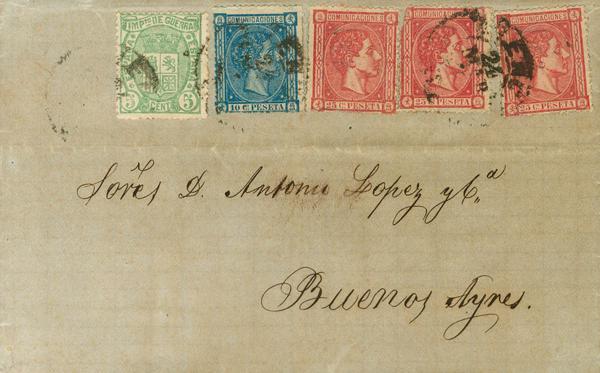 IMPTO DE GUERRA
5 CENT 5
COMUNICACIONES
10 CS PESETA
COMUNICACIONES
25 CS PESETA
COMUNICACIONES
25 CS PESETA
COMUNICACIONES
25 CS PESETA
Sores D. Antonio Lopez y Ca.
Buenos Ayres.